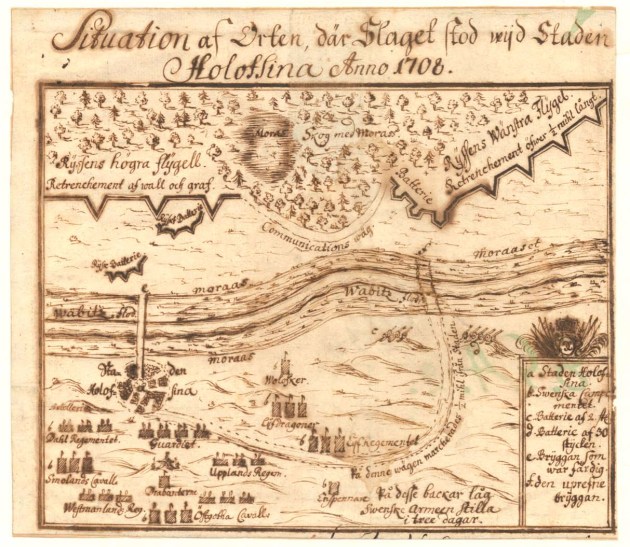 Situation af Orten, där Slaget stod wijd Staden
Holofsina Anno 1708.
Moras
Skog med Moras
Ryssens högra flygell.
Retrenchement af wall och graf.
Ryssens Wänstra Flygel.
Retrenchement öfwer ½ mihl långt.
Batterie
Rysk Batterie
Communications wäg
Ryss Batterie
Moraaset
moraas
Wabitz flod
Wabitz flod
moraas
Sta den
Holof sina
Artollerie
Dahl Regementet.
Guardiet.
Wolosker
LifDragoner
LifRegementet
Uplands Regem
Smolands Cavall.
Drabanterne
Westmanlands Reg.
Ostgotha Cavalle
På denne wägen marcherades ½ mihl från staden
På desse backar låg
Swenske Armeen stilla
i tree dagar.
a Staden Holof
sina.
b. Swenska Campe
mentet.
c. Batterie af 2 st.
d. Batterie af 30
stycken.
e. Bryggan som
war färdig.
f. den uprefne
bryggan.